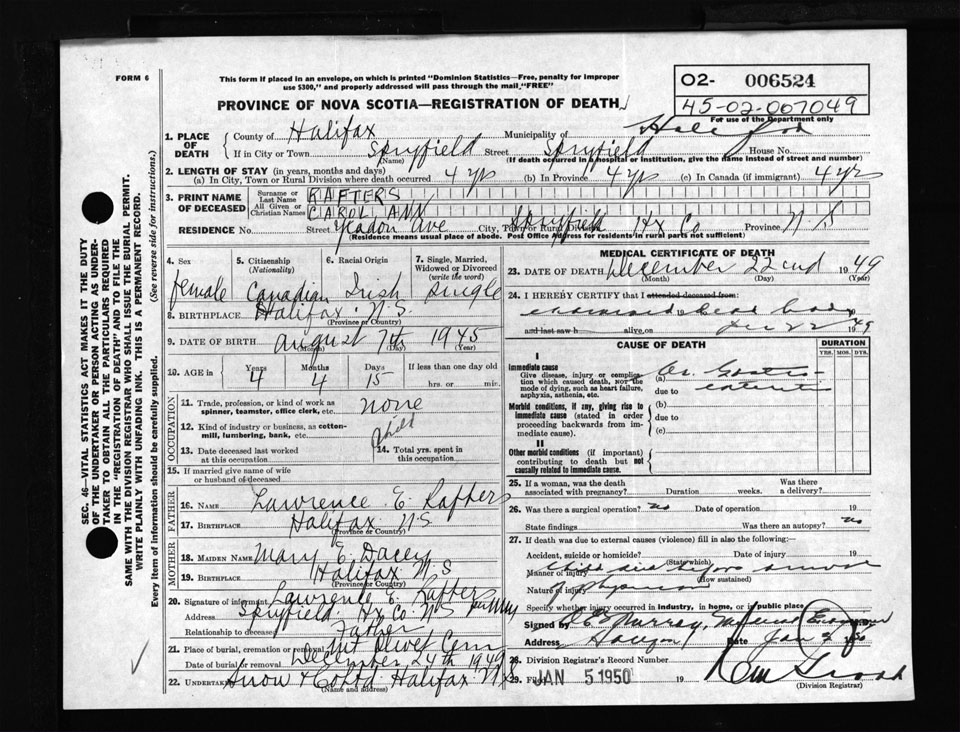 FORM 6
This form if placed in an envelope, on which is printed "Dominion Statistics—Free, penalty for improper
use $300," and properly addressed will pass through the mail "FREE"
PROVINCE OF NOVA SCOTIA—REGISTRATION OF DEATH
O2- 006524
45-02-007049
For use of the Department only
1. PLACE OF DEATH
County of Halifax Municipality of Halifax
If in City or Town Spryfield Street Spryfield House No.
(Name) (If death occurred in a hospital or institution, give the name instead of street and number)
2. LENGTH OF STAY (in years, months and days)
(a) In City, Town or Rural Division where death occurred 4 yrs (b) In Province 4 yrs (c) In Canada (if immigrant) 4 yrs
3. PRINT NAME OF DECEASED
Surname or Last Name RAFTERS
All Given or Christian Names CAROL ANN
RESIDENCE No. Street Yeadon Ave City, Town or Rural Division Spryfield Hx Co Province N-S
(Residence means usual place of abode. Post Office Address for residents in rural parts not sufficient)
4. Sex 5. Citizenship (Nationality) 6. Racial Origin 7. Single, Married, Widowed or Divorced (write the word)
female Canadian Irish single
8. BIRTHPLACE Halifax N.S.
(Province or Country)
9. DATE OF BIRTH August 7th 1945
(Month) (Day) (Year)
10. AGE in Years Months Days If less than one day old
4 4 15 hrs. or min.
OCCUPATION
11. Trade, profession, or kind of work as spinner, teamster, office clerk, etc. none
12. Kind of industry or business, as cotton-mill, lumbering, bank, etc. Child
13. Date deceased last worked at this occupation
14. Total yrs. spent in this occupation
15. If married give name of wife or husband of deceased
FATHER
16. NAME Lawrence E. Rafters
17. BIRTHPLACE Halifax N.S
(Province or Country)
MOTHER
18. MAIDEN NAME Mary E. Dacey
19. BIRTHPLACE Halifax N.S
(Province or Country)
20. Signature of informant Lawrence E. Rafters
Address Spryfield Hx Co N-S
Relationship to deceased Father
21. Place of burial, cremation or removal Mt Olivet Cem
Date of burial or removal December 24th 1949
22. UNDERTAKER Snow & Co Ltd Halifax N.S
(Name and address)
MEDICAL CERTIFICATE OF DEATH
23. DATE OF DEATH December 22nd 1949
(Month) (Day)
24. I HEREBY CERTIFY that I attended deceased from:
examined dead body
and last saw h alive on Dec 22 1949
CAUSE OF DEATH
DURATION
YRS. MOS. DYS.
I
Immediate cause
Give disease, injury or complication which caused death, NOT the mode of dying, such as heart failure, asphyxia, asthenia, etc.
(a) Gastro-
due to enteritis
Morbid conditions, if any, giving rise to immediate cause (stated in order proceeding backwards from immediate cause).
(b)
due to
(c)
II
Other morbid conditions (if important) contributing to death but not causally related to immediate cause.
25. If a woman, was the death associated with pregnancy? Duration weeks. Was there a delivery?
26. Was there a surgical operation? no Date of operation 19
State findings Was there an autopsy? no
27. If death was due to external causes (violence) fill in also the following:—
Accident, suicide or homicide? Date of injury 19
(State which)
Manner of injury Child died
(How sustained)
Nature of injury
Specify whether injury occurred in industry, in home, or in public place
Signed by Murray, Medical Examiner
Address Date Jan 2
28. Division Registrar's Record Number
29. Filed JAN 5 1950 19
(Division Registrar)
SEC. 46—VITAL STATISTICS ACT MAKES IT THE DUTY
OF THE UNDERTAKER OR PERSON ACTING AS UNDER-
TAKER TO OBTAIN ALL THE PARTICULARS REQUIRED
IN THE "REGISTRATION OF DEATH" AND TO FILE THE
SAME WITH THE DIVISION REGISTRAR WHO SHALL ISSUE THE BURIAL PERMIT.
WRITE PLAINLY WITH UNFADING INK. THIS IS A PERMANENT RECORD.
Every item of information should be carefully supplied. (See reverse side for instructions.)